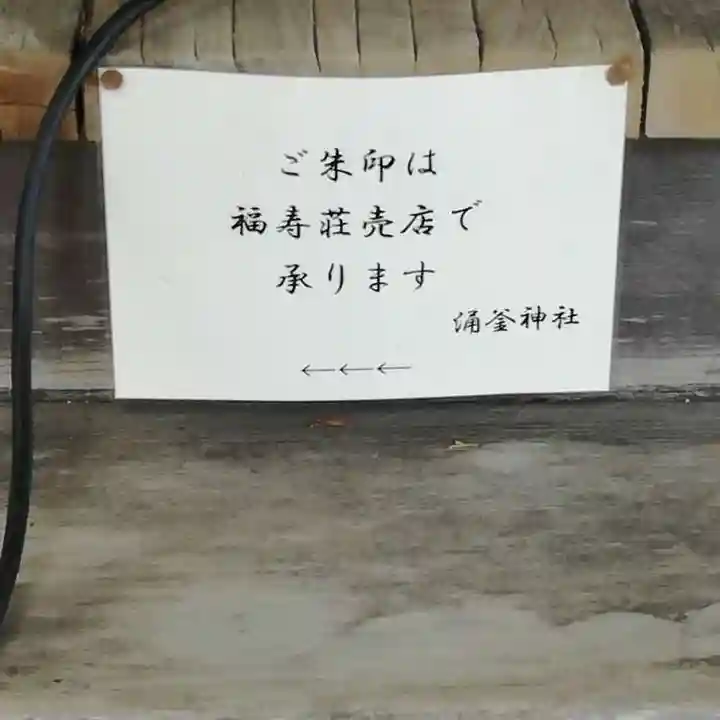 ご朱印は
福寿荘売店で
承ります
涌釜神社
←←←